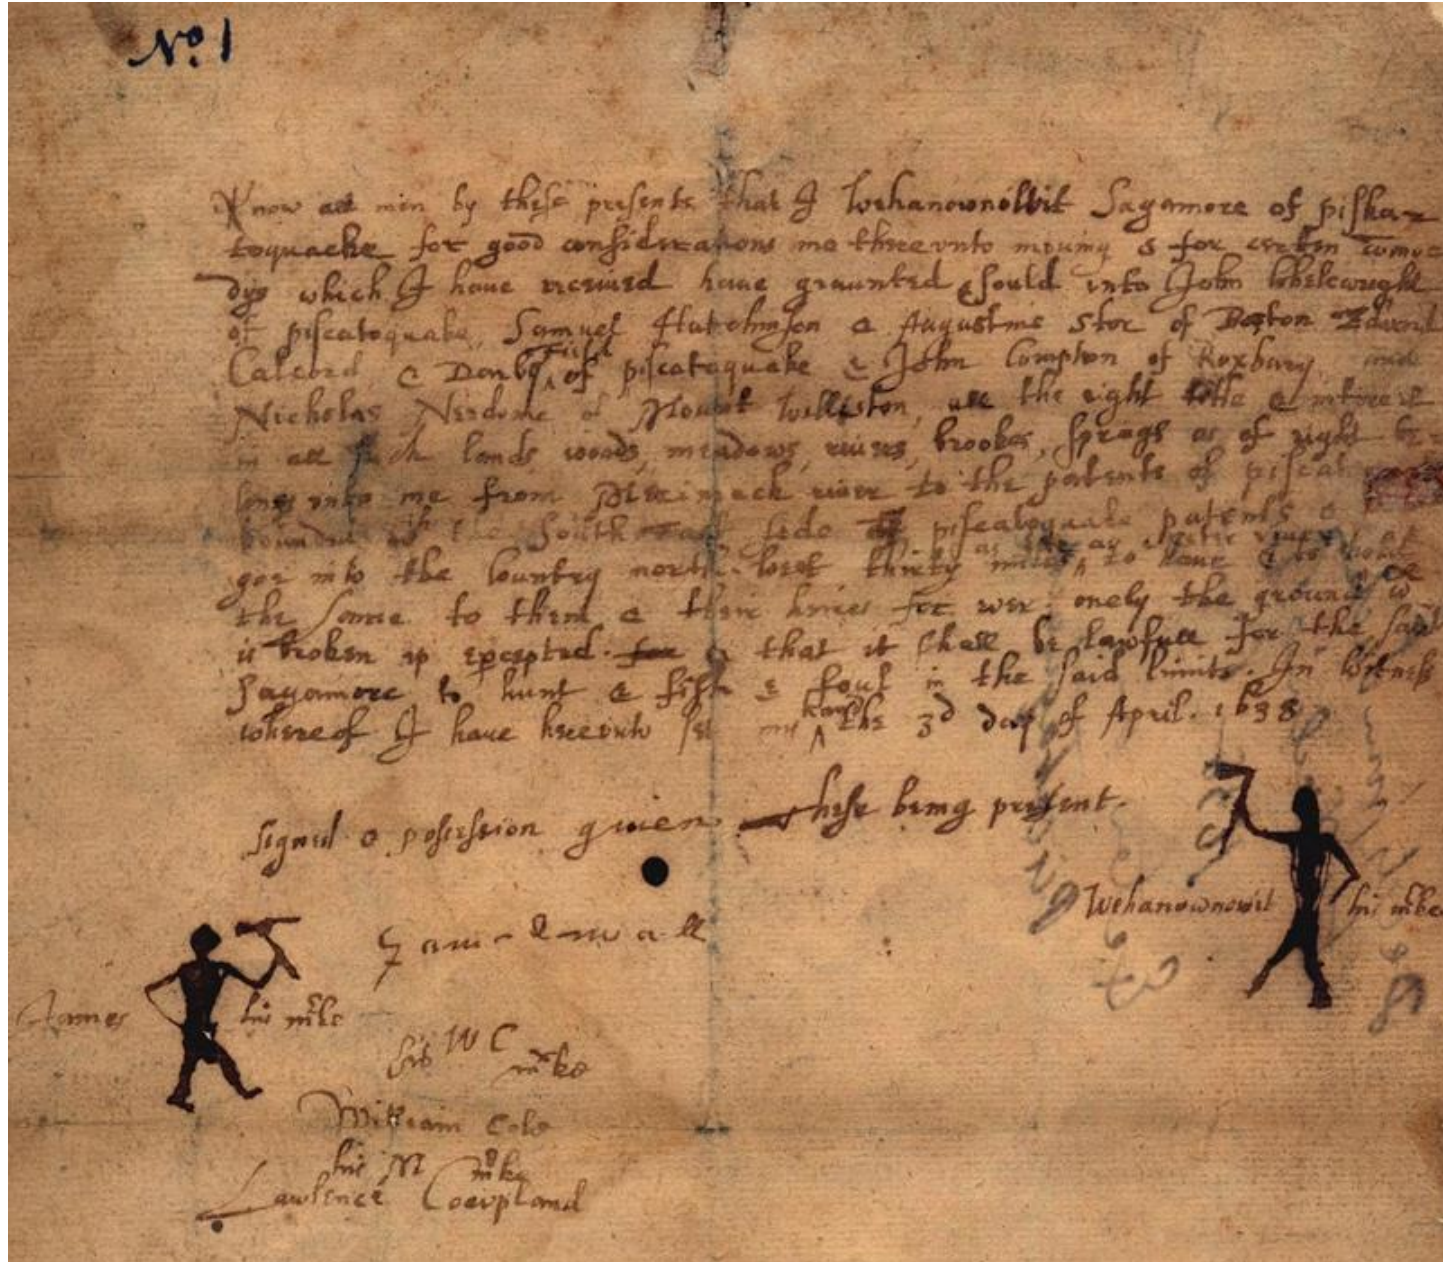 No. 1
Know all men by these presents that I Wehanownowit Sagamore of piska-
toquacke for good considerations me thereunto mouing & for certen comyo
dys which I haue receiued haue graunted & sould vnto John Whelewright
of piscatoquake, Samuel Hutchinson & Augustine Stor of Boston Edward
Calcord & Darby Field of piscatoquake & John Compton of Roxbury and
Nicholas Needome of Mount Walliston, all the right title & interest
in all such lands, woods, meadows, riuers, brookes, springs as of right be-
long vnto me from Merimack riuer to the patents of piscatoquake
bounded wth the South East side of piscatoquake patents &
goe into the Country north West thirty miles as far as oyster riuer to haue & to hold
the same to them & their heires for euer. onely the ground wch
is broken up excepted. for & that it shall be lawfull for the said
Sagamore to hunt & fish & foul in the said limits. In Witness
whereof I haue hereunto set my hand the 3d day of April. 1638
Signed & possession giuen these being present.
Wehanownowit his mke
James his mke
his W C mke
William Cole
his M mke
Lawlence Coevpland